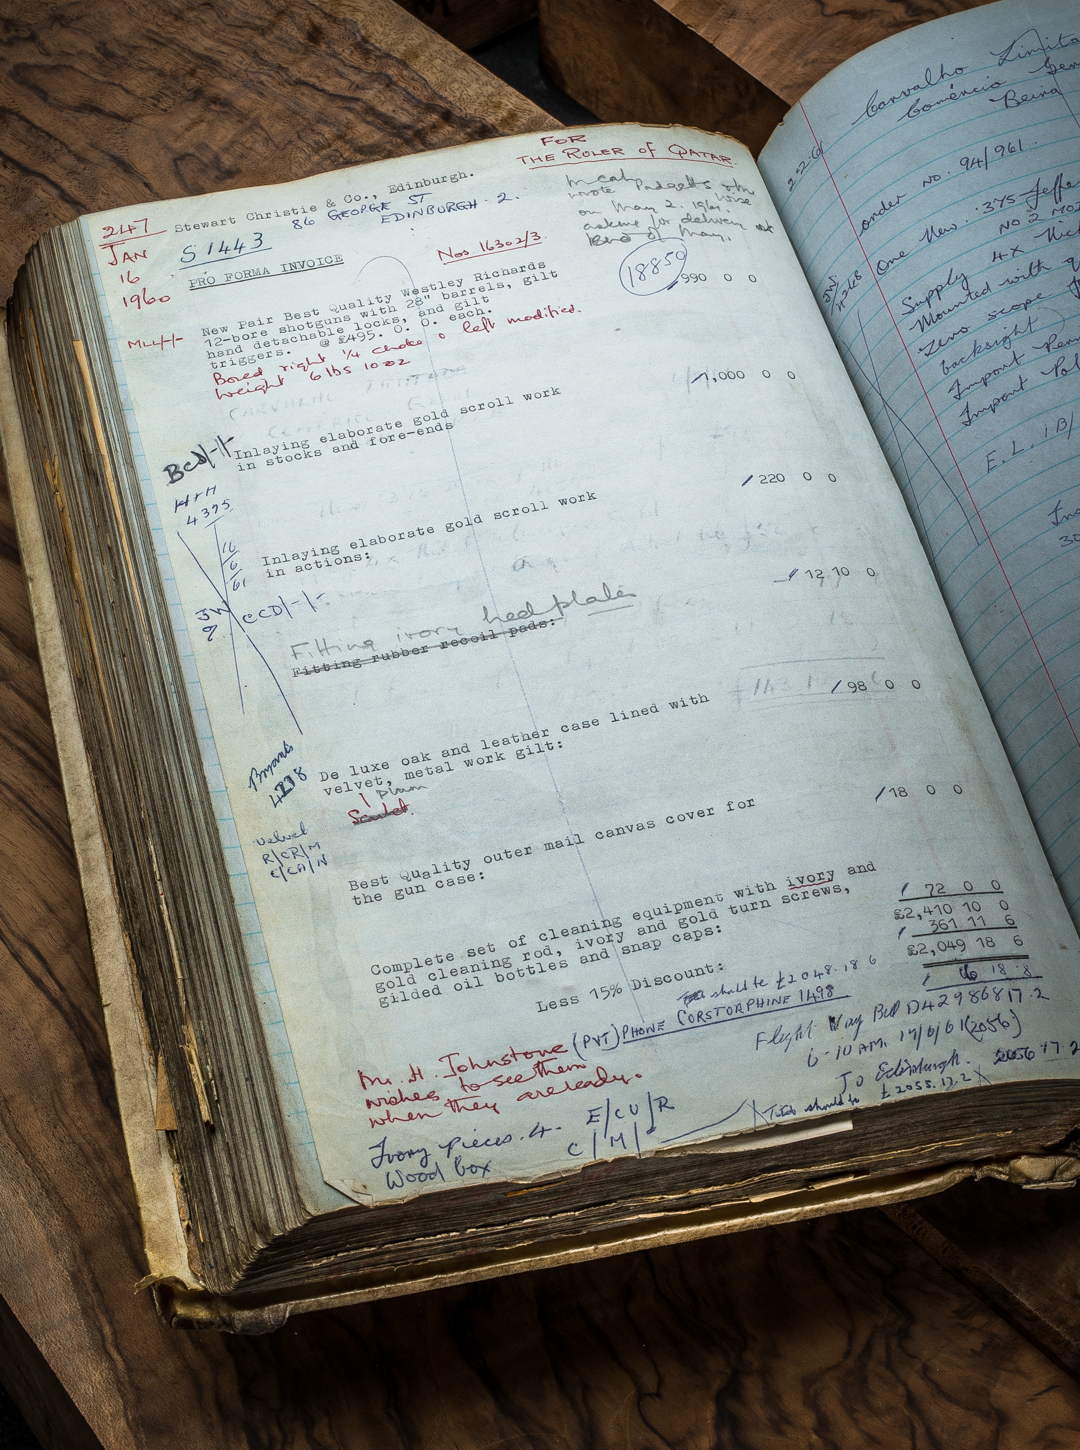 FOR
THE RULER of QATAR.
Stewart Christie & Co., Edinburgh.
86 GEORGE ST
EDINBURGH. 2.
247
JAN
16
1960
S 1443
PRO FORMA INVOICE
Nos 16302/3
wrote Padgetts
on May 2. 1961
asking for delivery at
End of May.
18850
New Pair Best Quality Westley Richards
12-bore shotguns with 28" barrels, gilt
hand detachable locks, and gilt
triggers. @ £495. 0. 0. each.
990 0 0
Bored right 1/4 choke left modified.
Weight 6 lbs 10 oz
Inlaying elaborate gold scroll work
in stocks and fore-ends
1,000 0 0
H+H
4395
Inlaying elaborate gold scroll work
in actions:
220 0 0
16
6
61
Fitting ivory heel plates
Fitting rubber recoil pads:
12 10 0
De luxe oak and leather case lined with
velvet, metal work gilt:
98 0 0
Plain
Scarlet
Bryants
4238
Velvet
R/CR/M
Best Quality outer mail canvas cover for
the gun case:
18 0 0
Complete set of cleaning equipment with ivory and
gold cleaning rod, ivory and gold turn screws,
gilded oil bottles and snap caps:
72 0 0
£2,410 10 0
Less 15% Discount:
361 11 6
£2,049 18 6
should be £2048.18 6
6 18 8
Mr. H. Johnstone (PVT) PHONE CORSTORPHINE 1498
wishes to see them
when they are ready.
Flight Way Bill D42986817.2
6-10 AM. 17/6/61 (2056)
To Edinburgh. 2056 17.2
Total should be £2055.17.2
Ivory pieces. 4. E/CU/R
Wood box C/M/
Carvalho
Comércio
Beira
order No. 94/961.
One New .375
No 2
Supply 4X
Mounted with
Zero scope
backsight
Import
Import
E.L. 1B/